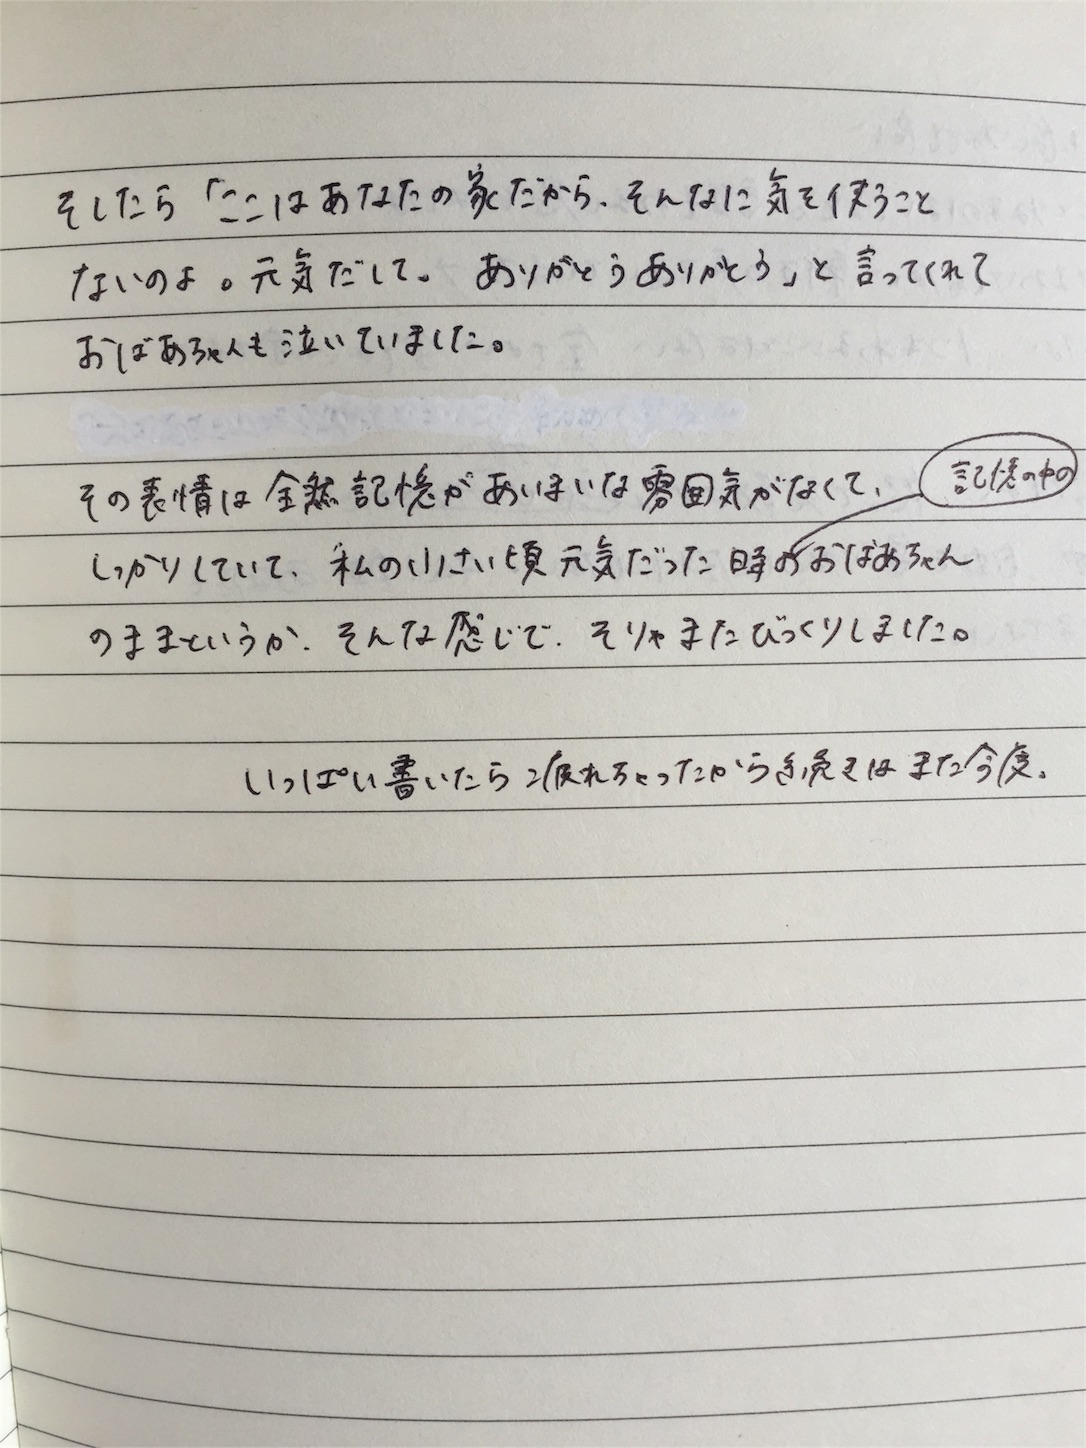 そしたら「ここはあなたの家だから、そんなに気を使うこと
ないのよ。元気だして。ありがとうありがとう」と言ってくれて
おばあちゃんも泣いていました。
その表情は全然記憶があいまいな雰囲気がなくて、
記憶の中の
しっかりしていて、私の小さい頃元気だった時のおばあちゃん
のままというか、そんな感じで、そりゃまたびっくりしました。
いっぱい書いたら疲れちゃったから続きはまた今度、